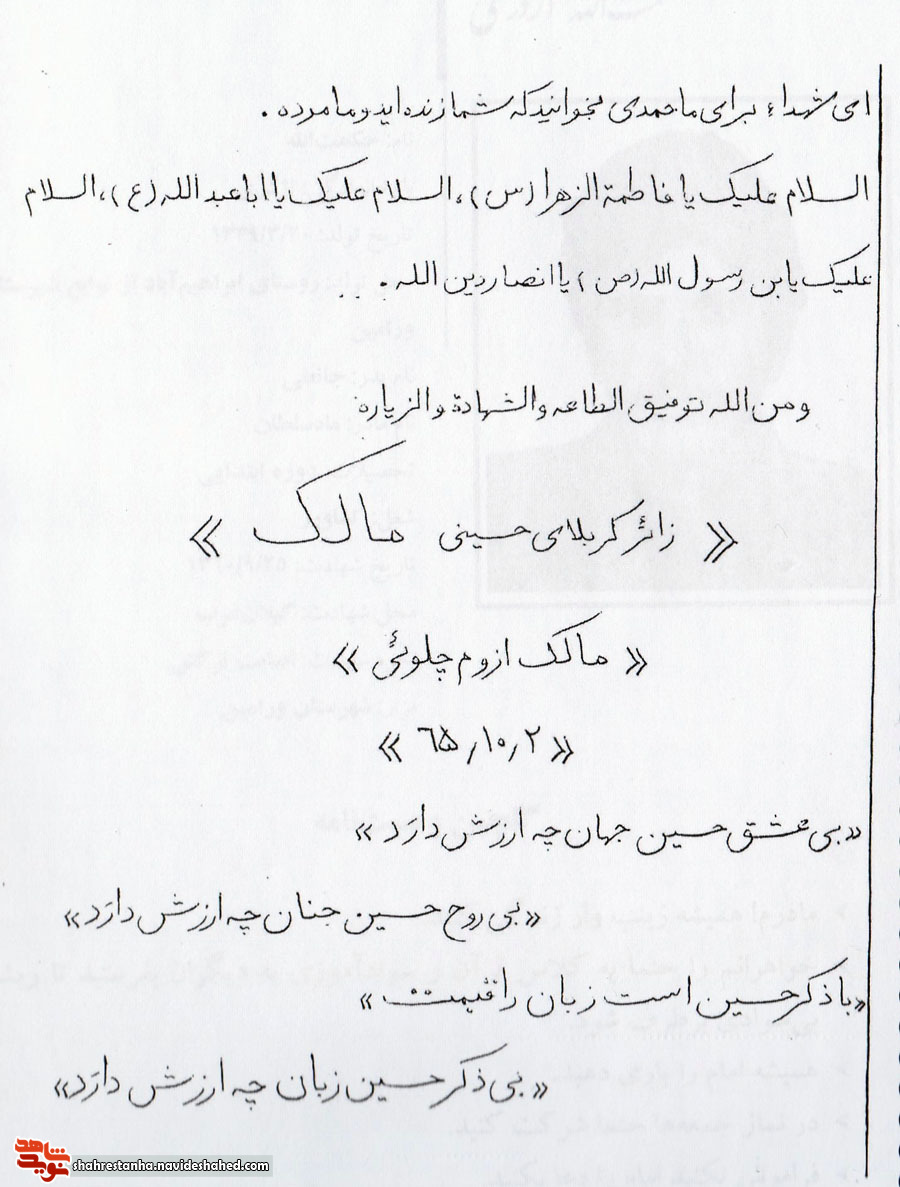 ای شهداء برای ما حمدی بخوانید که شما زنده اید و ما مرده .
السلام علیک یا فاطمة الزهرا (س) ، السلام علیک یا اباعبدالله (ع) ، السلام
علیک یابن رسول الله (ص) یا انصار دین الله .
و من الله توفیق الطاعه والشهادة والزیاره
« زائر کربلای حسینی مالک »
« مالک ازوم چلوئی »
« ۶۵٫۱۰٫۲ »
«بی عشق حسین جهان چه ارزش دارد »
«بی روح حسین جنان چه ارزش دارد»
«با ذکر حسین است زبان را قیمت »
« بی ذکر حسین زبان چه ارزش دارد»
نوید شاهد
shahrestanha.navideshahed.com